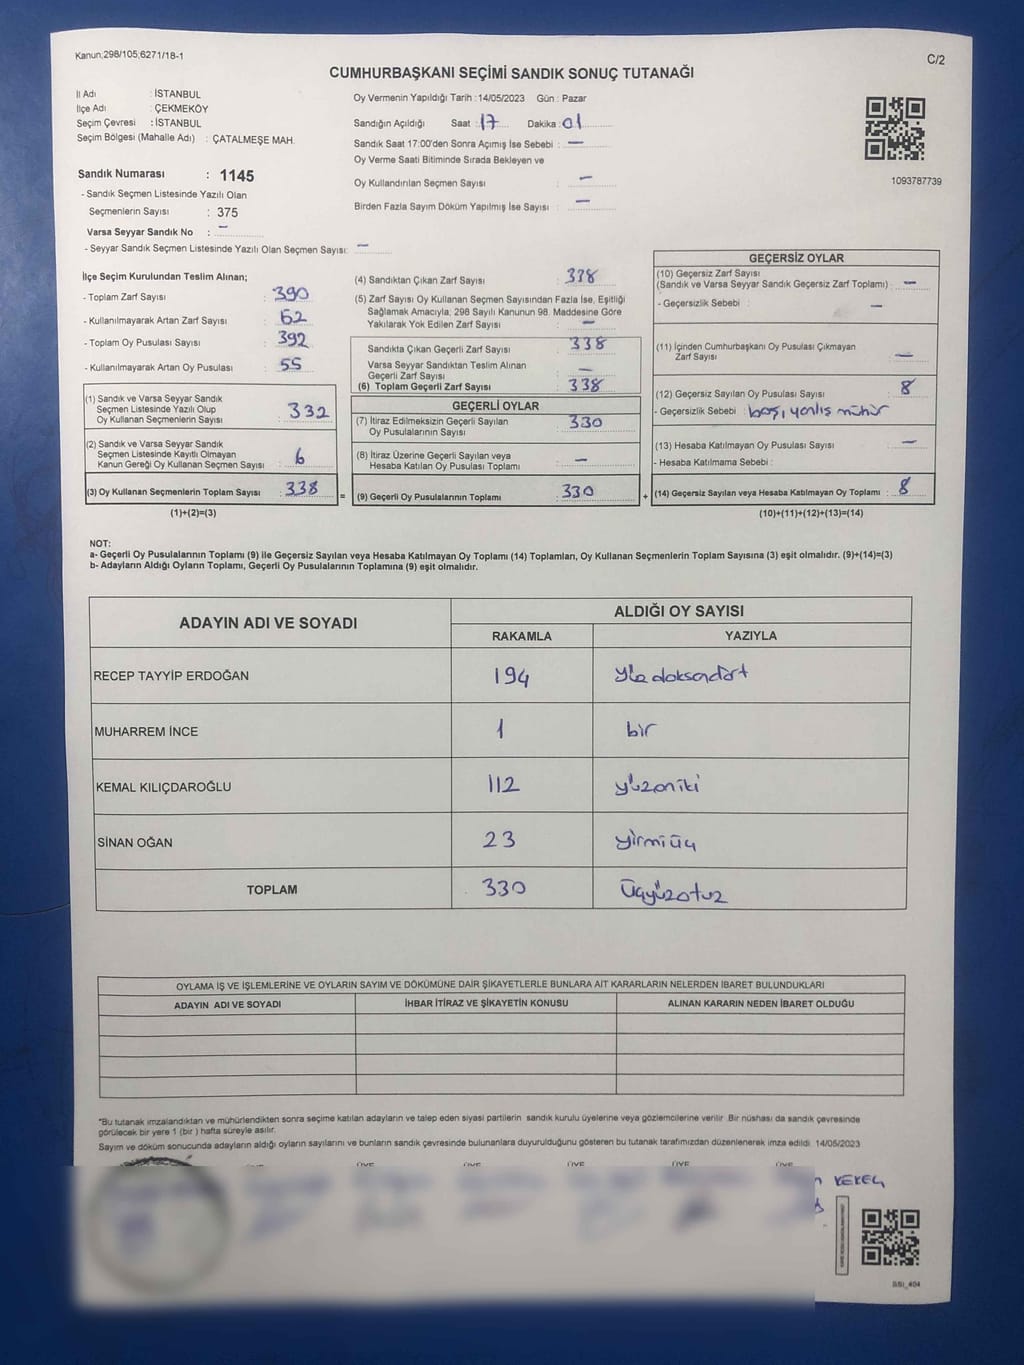 Kanun;298/105;6271/18-1
C/2
CUMHURBAŞKANI SEÇİMİ SANDIK SONUÇ TUTANAĞI
İl Adı : İSTANBUL
İlçe Adı : ÇEKMEKÖY
Seçim Çevresi : İSTANBUL
Seçim Bölgesi (Mahalle Adı) : ÇATALMEŞE MAH.
Sandık Numarası : 1145
- Sandık Seçmen Listesinde Yazılı Olan
Seçmenlerin Sayısı : 375
Varsa Seyyar Sandık No : -
- Seyyar Sandık Seçmen Listesinde Yazılı Olan Seçmen Sayısı: -
Oy Vermenin Yapıldığı Tarih : 14/05/2023 Gün : Pazar
Sandığın Açıldığı Saat : 17 Dakika : 01
Sandık Saat 17:00'den Sonra Açımış İse Sebebi : -
Oy Verme Saati Bitiminde Sırada Bekleyen ve
Oy Kullandırılan Seçmen Sayısı : -
Birden Fazla Sayım Döküm Yapılmış İse Sayısı : -
1093787739
İlçe Seçim Kurulundan Teslim Alınan;
- Toplam Zarf Sayısı : 390
- Kullanılmayarak Artan Zarf Sayısı : 62
- Toplam Oy Pusulası Sayısı : 392
- Kullanılmayarak Artan Oy Pusulası : 55
(1) Sandık ve Varsa Seyyar Sandık
Seçmen Listesinde Yazılı Olup
Oy Kullanan Seçmenlerin Sayısı : 332
(2) Sandık ve Varsa Seyyar Sandık
Seçmen Listesinde Kayıtlı Olmayan
Kanun Gereği Oy Kullanan Seçmen Sayısı : 6
(3) Oy Kullanan Seçmenlerin Toplam Sayısı : 338
(1)+(2)=(3)
=
(4) Sandıktan Çıkan Zarf Sayısı : 338
(5) Zarf Sayısı Oy Kullanan Seçmen Sayısından Fazla İse, Eşitliği
Sağlamak Amacıyla; 298 Sayılı Kanunun 98. Maddesine Göre
Yakılarak Yok Edilen Zarf Sayısı : -
Sandıkta Çıkan Geçerli Zarf Sayısı : 338
Varsa Seyyar Sandıktan Teslim Alınan
Geçerli Zarf Sayısı : -
(6) Toplam Geçerli Zarf Sayısı : 338
GEÇERLİ OYLAR
(7) İtiraz Edilmeksizin Geçerli Sayılan
Oy Pusulalarının Sayısı : 330
(8) İtiraz Üzerine Geçerli Sayılan veya
Hesaba Katılan Oy Pusulası Toplamı : -
(9) Geçerli Oy Pusulalarının Toplamı : 330
+
GEÇERSİZ OYLAR
(10) Geçersiz Zarf Sayısı
(Sandık ve Varsa Seyyar Sandık Geçersiz Zarf Toplamı) : -
- Geçersizlik Sebebi : -
(11) İçinden Cumhurbaşkanı Oy Pusulası Çıkmayan
Zarf Sayısı : -
(12) Geçersiz Sayılan Oy Pusulası Sayısı : 8
- Geçersizlik Sebebi : boş, yanlış mühür
(13) Hesaba Katılmayan Oy Pusulası Sayısı : -
- Hesaba Katılmama Sebebi :
(14) Geçersiz Sayılan veya Hesaba Katılmayan Oy Toplamı : 8
(10)+(11)+(12)+(13)=(14)
NOT:
a- Geçerli Oy Pusulalarının Toplamı (9) ile Geçersiz Sayılan veya Hesaba Katılmayan Oy Toplamı (14) Toplamları, Oy Kullanan Seçmenlerin Toplam Sayısına (3) eşit olmalıdır. (9)+(14)=(3)
b- Adayların Aldığı Oyların Toplamı, Geçerli Oy Pusulalarının Toplamına (9) eşit olmalıdır.
ADAYIN ADI VE SOYADI
ALDIĞI OY SAYISI
RAKAMLA YAZIYLA
RECEP TAYYİP ERDOĞAN 194 yüz doksandört
MUHARREM İNCE 1 bir
KEMAL KILIÇDAROĞLU 112 yüzoniki
SİNAN OĞAN 23 yirmiüç
TOPLAM 330 üçyüzotuz
OYLAMA İŞ VE İŞLEMLERİNE VE OYLARIN SAYIM VE DÖKÜMÜNE DAİR ŞİKAYETLERLE BUNLARA AİT KARARLARIN NELERDEN İBARET BULUNDUKLARI
ADAYIN ADI VE SOYADI İHBAR İTİRAZ VE ŞİKAYETİN KONUSU ALINAN KARARIN NEDEN İBARET OLDUĞU
*Bu tutanak imzalandıktan ve mühürlendikten sonra seçime katılan adayların ve talep eden siyasi partilerin sandık kurulu üyelerine veya gözlemcilerine verilir. Bir nüshası da sandık çevresinde
görülecek bir yere 1 (bir) hafta süreyle asılır.
Sayım ve döküm sonucunda adayların aldığı oyların sayılarını ve bunların sandık çevresinde bulunanlara duyurulduğunu gösteren bu tutanak tarafımızdan düzenlenerek imza edildi. 14/05/2023
ÜYE ÜYE ÜYE ÜYE ÜYE ÜYE
SSI_404